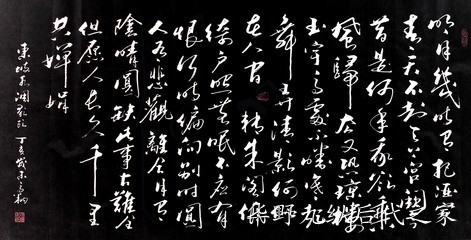 明月幾時有把酒
青天不知天上宮闕今
是何年我欲乘
風歸去又恐瓊樓
玉宇高處不勝寒起
舞弄清影何似
在人間轉朱閣低
綺戶照無眠不應有
恨何偏向別時圓
人有悲歡離合月有
陰晴圓缺此事古難全
但願人長久千里
共嬋娟
東坡水調歌頭 丁亥歲末